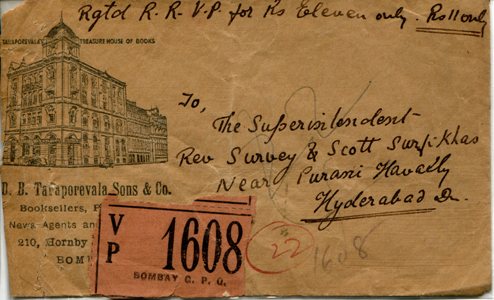 Rgtd R. R. V.P for Rs Eleven only. Rs 11 only
TARAPOREVALA'S TREASURE HOUSE OF BOOKS
To,
The Superintendent
Rev Survey & Scott Surf-i-khas
Near Purani Havaely
Hyderabad Dn.
D. B. Taraporevala Sons & Co.
Booksellers,
News Agents and
210, Hornby
BOM
V P 1608
BOMBAY G. P. O.
22
1608